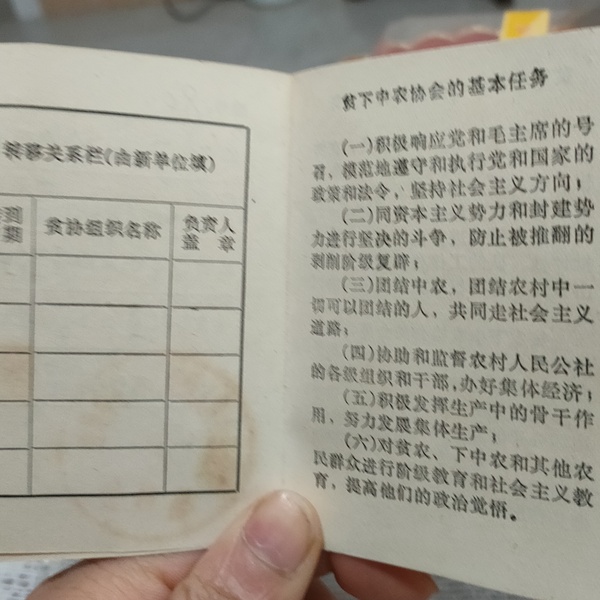 转移关系栏(由新单位填)
贫协组织名称
负责人
盖 章
期
贫下中农协会的基本任务
(一)积极响应党和毛主席的号
召，模范地遵守和执行党和国家的
政策和法令，坚持社会主义方向；
(二)同资本主义势力和封建势
力进行坚决的斗争，防止被推翻的
剥削阶级复辟；
(三)团结中农，团结农村中一
切可以团结的人，共同走社会主义
道路；
(四)协助和监督农村人民公社
的各级组织和干部，办好集体经济；
(五)积极发挥生产中的骨干作
用，努力发展集体生产；
(六)对贫农、下中农和其他农
民群众进行阶级教育和社会主义教
育，提高他们的政治觉悟。